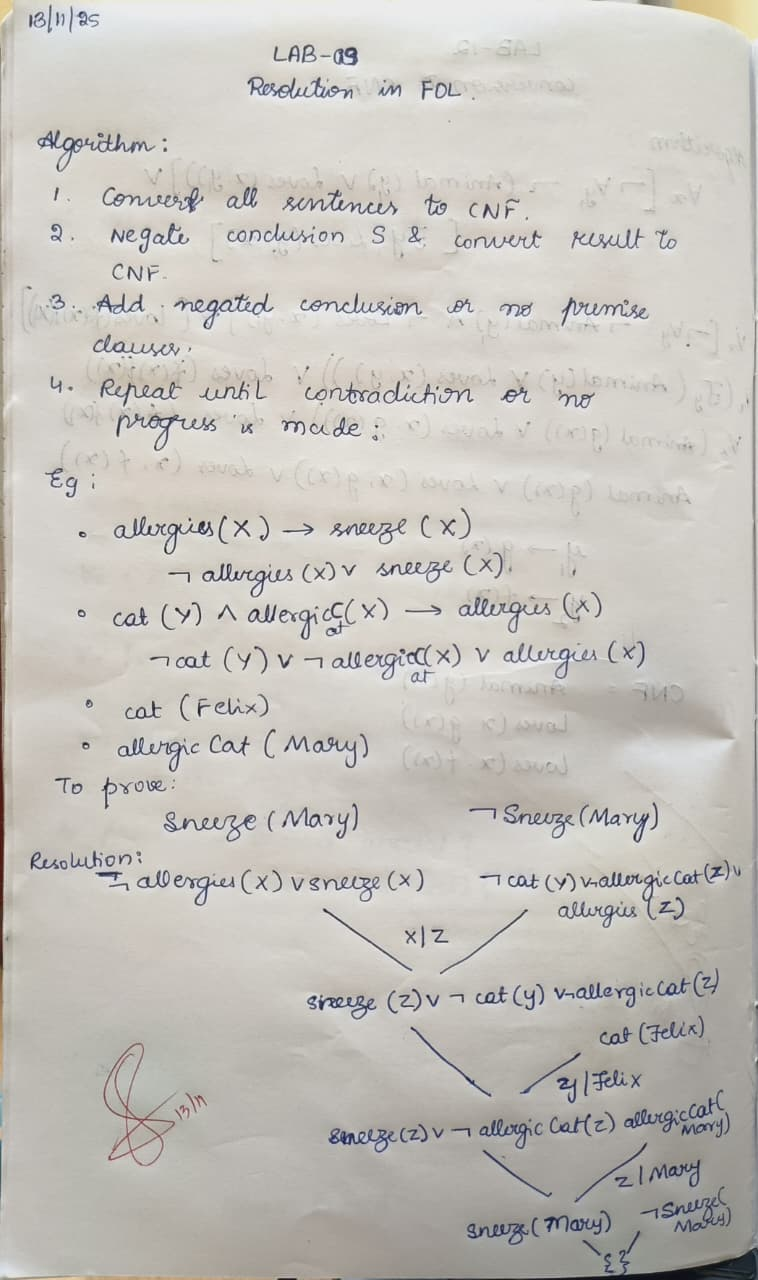 13/11/25
LAB-09
Resolution in FOL.
Algorithm:
1. Convert all sentences to CNF.
2. Negate conclusion S & convert result to
CNF.
3. Add negated conclusion or no premise
clauses.
4. Repeat until contradiction or no
progress is made:
Eg:
• allergies(X) → sneeze (X)
¬ allergies (X) ∨ sneeze (X).
• cat (Y) ∧ allergicCat(X) → allergies (X)
¬cat (Y) ∨ ¬ allergicCat(X) ∨ allergies (X)
• cat (Felix)
• allergic Cat (Mary)
To prove:
Sneeze (Mary) ¬Sneeze(Mary)
Resolution:
¬ allergies(X) ∨ sneeze(X) ¬cat(Y) ∨¬allergicCat(Z) ∨
allergies (Z)
X|Z
sneeze (Z) ∨ ¬ cat(y) ∨¬allergicCat(Z)
cat(Felix)
y|Felix
sneeze(z) ∨ ¬ allergic Cat(z) allergicCat(
Mary)
z|Mary
sneeze(Mary) ¬Sneeze(
Mary)
{}
13/11